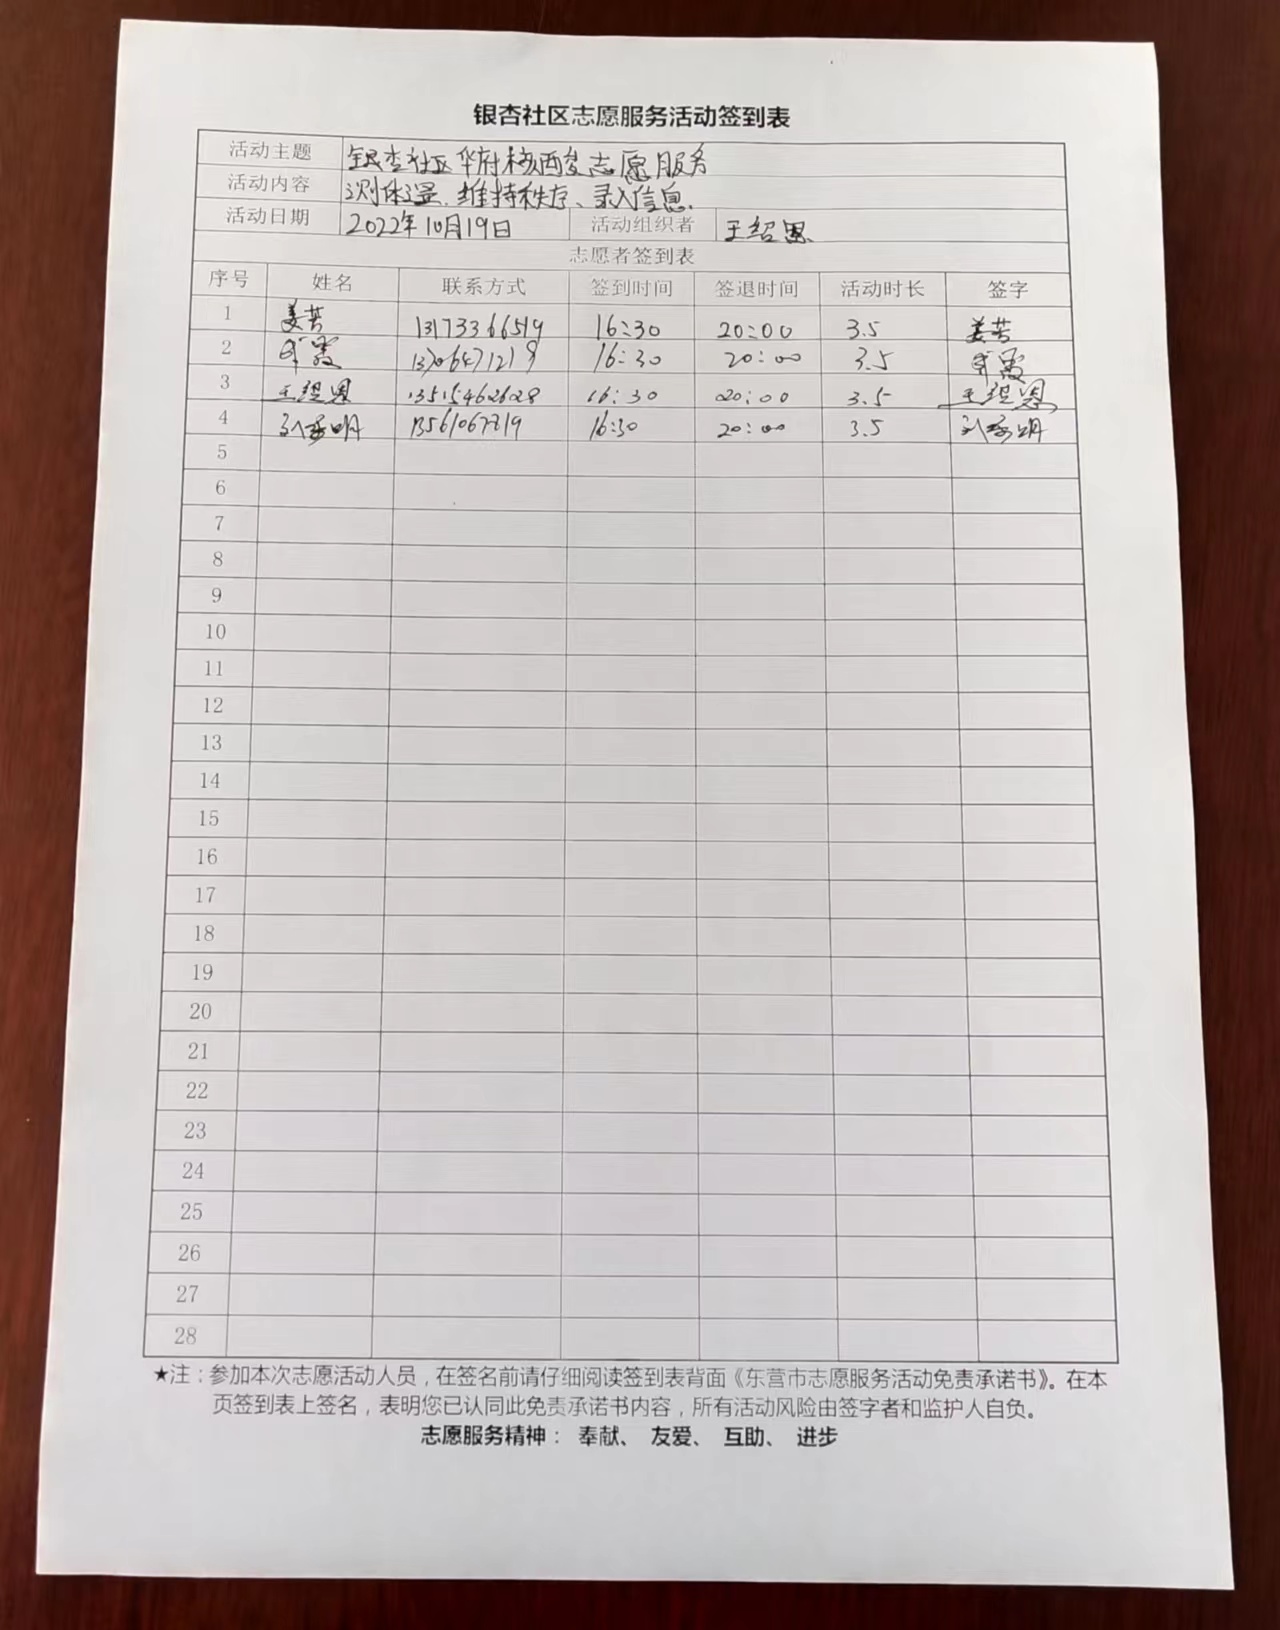 银杏社区志愿服务活动签到表
活动主题 银杏社区华府核酸志愿服务
活动内容 测体温、维持秩序、录入信息.
活动日期 2022年10月19日 活动组织者 王绍恩
志愿者签到表
序号 姓名 联系方式 签到时间 签退时间 活动时长 签字
1 姜芳 13173366519 16:30 20:00 3.5 姜芳
2 霞 13706471219 16:30 20:00 3.5 霞
3 王绍恩 13515462628 16:30 20:00 3.5 王绍恩
4 刘秀明 13561067219 16:30 20:00 3.5 刘秀明
5
6
7
8
9
10
11
12
13
14
15
16
17
18
19
20
21
22
23
24
25
26
27
28
★注：参加本次志愿活动人员，在签名前请仔细阅读签到表背面《东营市志愿服务活动免责承诺书》。在本
页签到表上签名，表明您已认同此免责承诺书内容，所有活动风险由签字者和监护人自负。
志愿服务精神： 奉献、 友爱、 互助、 进步